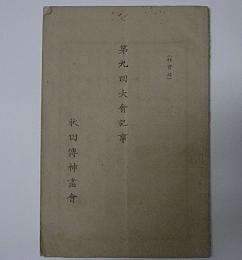 (非賣品)
第九回大會記事
秋田傳神畫會